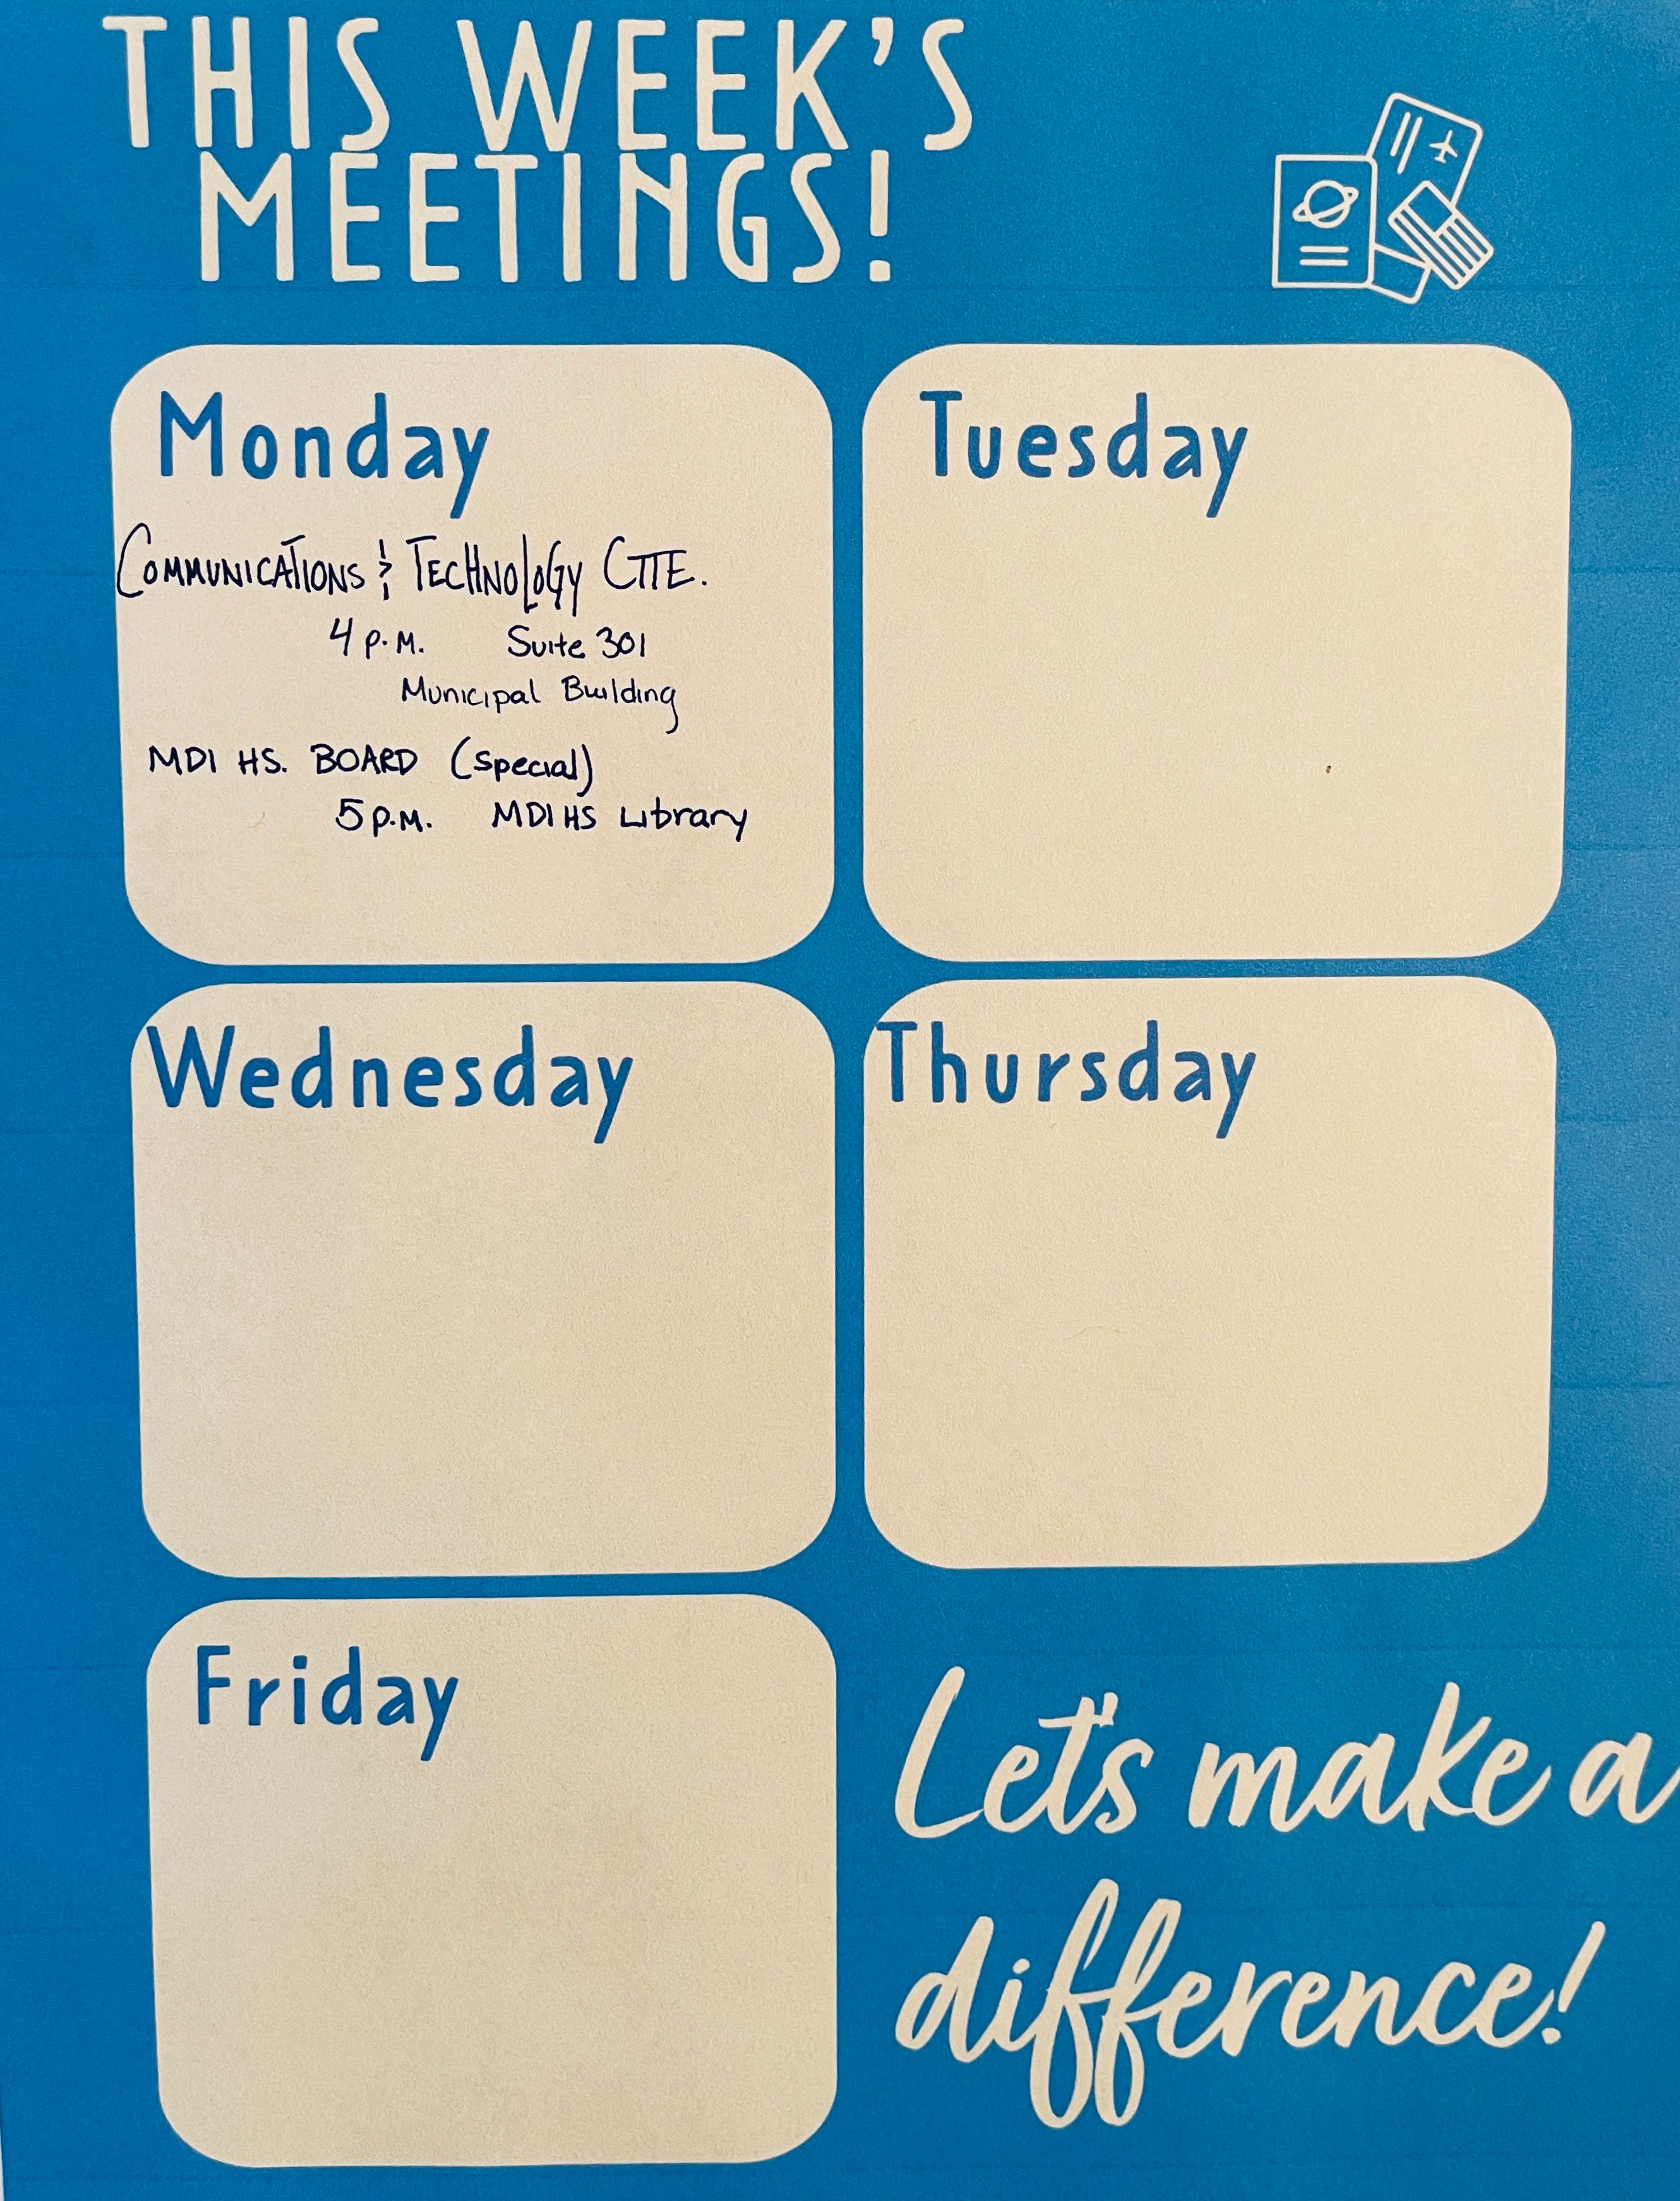 THIS WEEK'S
MEETINGS!
Monday
COMMUNICATIONS & TECHNOLOGY CTTE.
4 P.M. Suite 301
Municipal Building
MDI HS. BOARD (Special)
5 P.M. MDIHS Library
Tuesday
Wednesday
Thursday
Friday
Let's make a
difference!